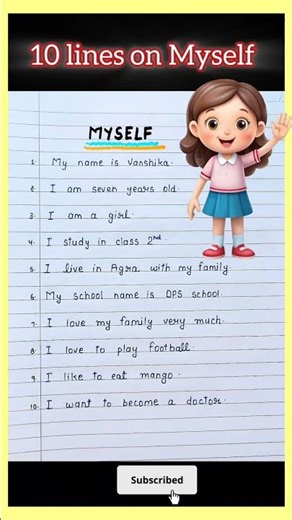 10 lines on Myself
MYSELF
1. My name is Vanshika.
2. I am seven years old.
3. I am a girl.
4. I study in class 2nd
5. I live in Agra with my family.
6. My school name is DPS school.
7. I love my family very much.
8. I love to play football.
9. I like to eat mango.
10. I want to become a doctor.
Subscribed